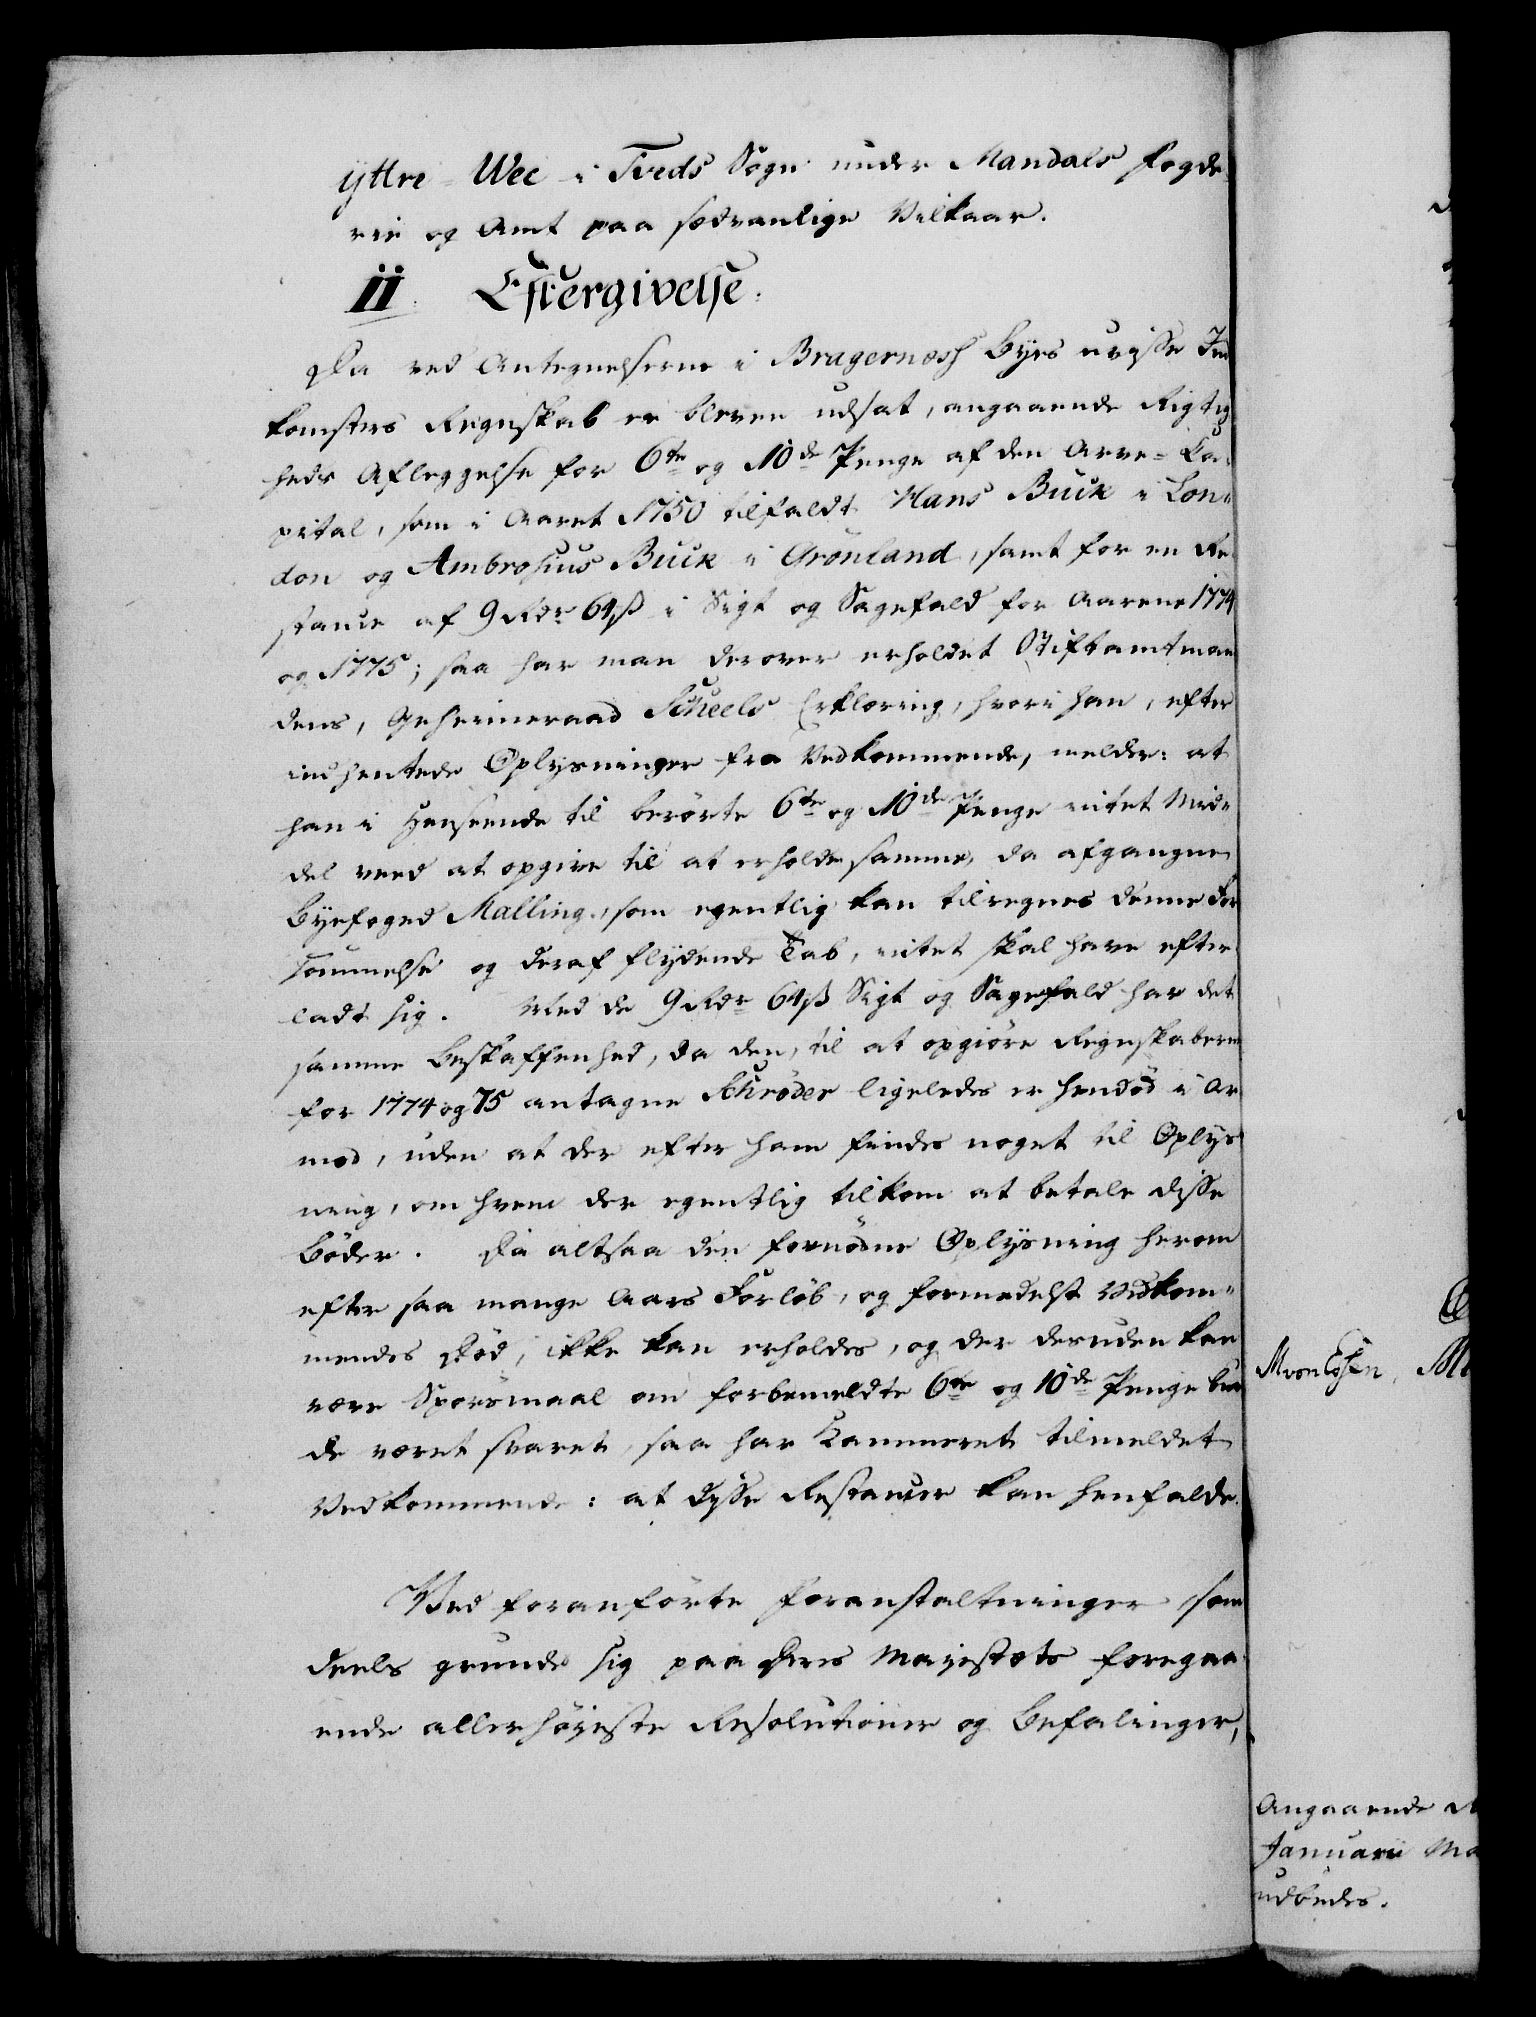 ÿttre-Wee i Tveds Sogn under Mandals Fogde-
rie og Amt paa sædvanlige Vilkaar.
ii. Eftergivelse.
Da ved Antegnelserne i Bragernæss Byes uvisse Ind
komsters Regnskab er bleven udsat, angaaende Rigtig
heds Aflæggelse for 6te og 10de Penge af den Arve-Ca-
pital, som i Aaret 1750 tilfaldt Hans Buck i Lon-
don og Ambrosius Buck i Grønland, samt for en Re-
stance af 9 Rdr 64 ß i Sigt og Sagefald for Aarene 1774
og 1775; saa har man derover erholdet Stiftamtman
dens, Geheimeraad Scheels Erklæring, hvori han, efter
indhentede Oplysninger fra Vedkommende, melder: at
han i Henseende til berørte 6te og 10de Penge intet Mid-
del veed at opgive til at erholde samme, da afgangne
Byefoged Malling, som egentlig kan tilregnes denne For
sømmelse og deraf flydende Tab, intet skal have efter
ladt sig. Med de 9 Rdr 64 ß Sigt og Sagefald har det
samme Beskaffenhed, da den, til at opgiøre Regnskaberne
for 1774 og 75 antagne Schrøder ligeledes er hendød i Ar
mod, uden at der efter ham findes noget til Oplys
ning, om hvem der egentlig tilkom at betale disse
Bøder. Da altsaa den fornødne Oplysning herom
efter saa mange Aars Forløb, og formedelst Vedkom-
mendes Død, ikke kan erholdes, og der desuden kan
være Spørsmaal om forbemeldte 6te og 10de Penge bur
de været svaret, saa har Kammeret tilmeldet
Vedkommende: at disse Restancer kan henfalde.
Ved foranførte Foranstaltninger som
deels grunde sig paa Deres Majestæts foregaa-
ende allerhøjeste Resolutioner og Befalinger,
Angaaende
Januarii
udbydes.